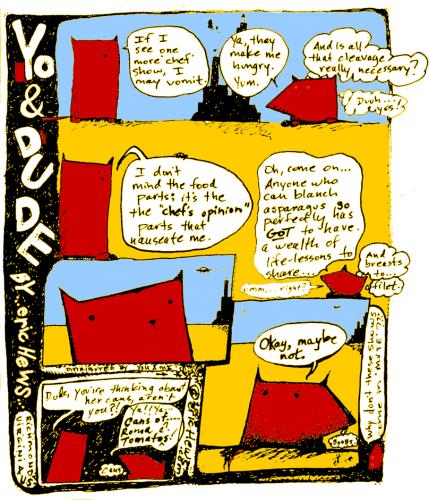 Yo & DUDE
BY. eric Hews.
RICHMOND'S
If I
see one
more "chef"
show, I
may vomit.
Ya, they
make me
hungry.
Yum.
And is all
that cleavage
really necessary?
Duuh...
yes!
I don't
mind the food
parts; it's the
the "chef's opinion"
parts that
nauseate me.
Oh, come on...
Anyone who
can blanch
asparagus so
perfectly has
GOT to have
a wealth of
life-lessons to
share...
umm...right?
And
breasts
to
filet.
Dude, you're thinking about
her cans, aren't
you??
Ya!! Ya,
Cans of
Roma
Tomatos.
Cans.
Okay, maybe
not.
Boobs.
why don't these shows
come in